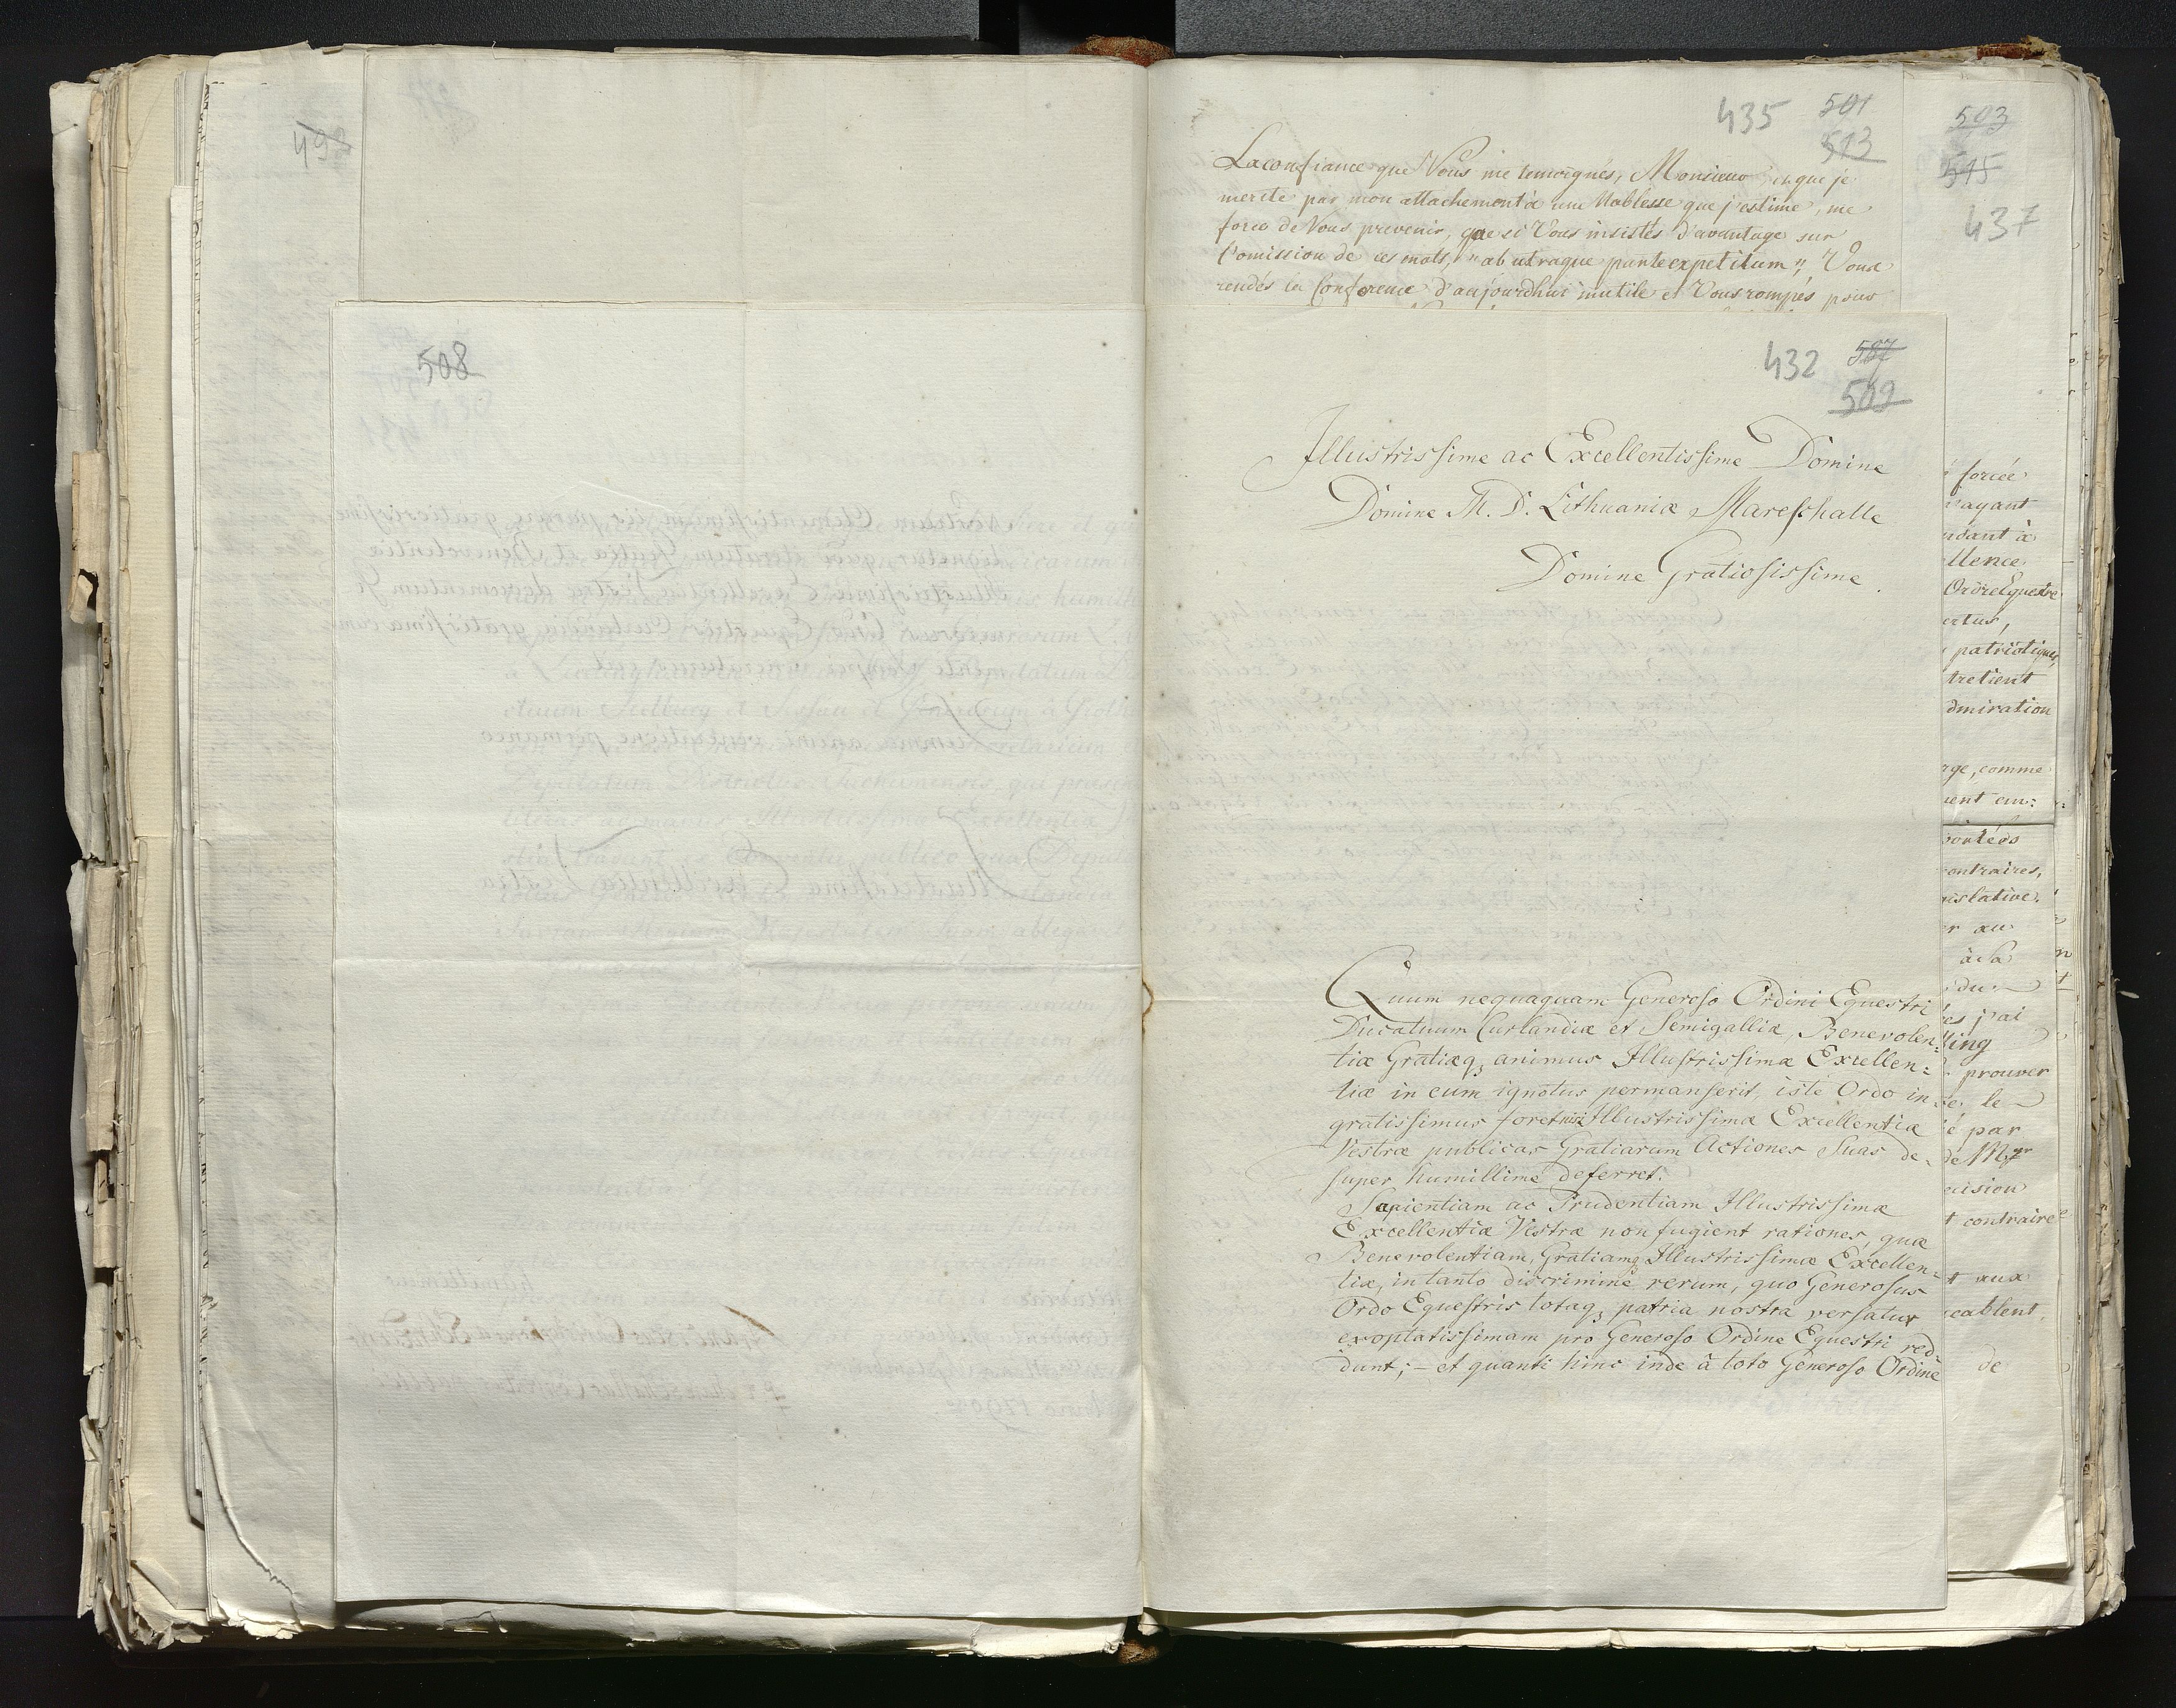 498
508
435 501
513
503
515
437
La confiance que Vous me temoignés, Monsieur et que je
merite par mon attachement à une Noblesse que j'estime, me
force de Vous prevenir, que si Vous insistés d'avantage sur
l'omission de ces mots, "ab utraque parte expetitum", Vous
rendés la Conference d'aujourdhui inutile et Vous rompés
432 507
509
Illustrissime ac Excellentissime Domine
Domine M. D. Lithuaniæ Mareschalle
Domine Gratiosissime.
Quum nequaquam Generoso Ordini Equestri
Ducatuum Curlandiæ et Semigalliæ, Benevolen:
tiæ Gratiæq; animus Illustrissimæ Excellen:
tiæ in eum ignotus permanserit, iste Ordo in
gratissimus foret nisi Illustrissimæ Excellentiæ
Vestræ publicas Gratiarum Actiones Suas de-
super humillime deferret.
Sapientiam ac Prudentiam Illustrissimæ
Excellentiæ Vestræ non fugient rationes, quæ
Benevolentiam, Gratiamq; Illustrissimæ Excellen:
tiæ, in tanto discrimine rerum, quo Generosus
Ordo Equestris totaq; patria nostra versatur
exoptatissimam pro Generoso Ordine Equestri red:
dunt; - et quanti hinc inde à toto Generoso Ordine
forcée
ayant
dant à
llence
Ordre Equestre
ertus,
patriotiques,
tretient
dmiration
rge, comme
ent em:
ontraires,
islative.
r au
à Sa
du
es j'ai
ling
prouver
le
é par
de Mgr
cision
t contraire
t aux
cablent
de